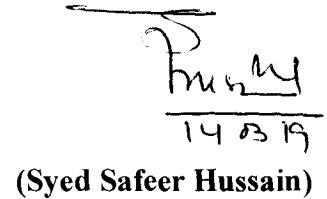 14 03 19
(Syed Safeer Hussain)